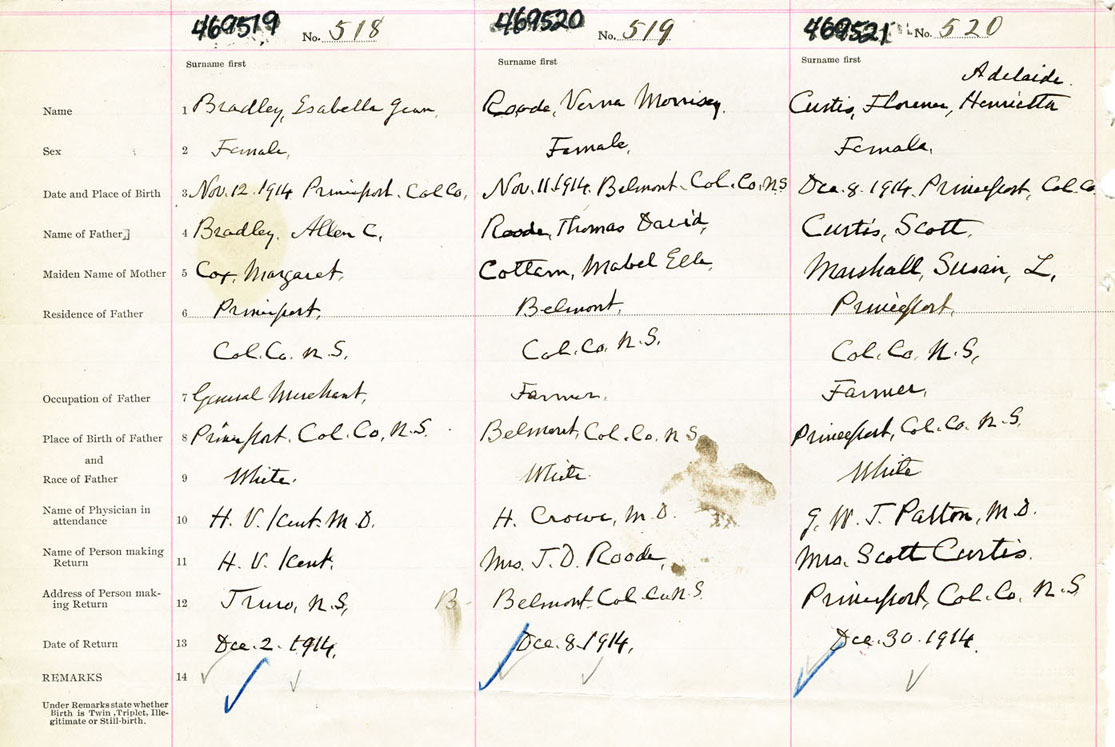 469519 No. 518 469520 No. 519 469521 No. 520
Surname first Surname first Surname first
Adelaide
Name 1 Bradley, Esabella Jean, Roode, Verna Morrisey. Curtis, Florence, Henrietta
Sex 2 Female, Female, Female,
Date and Place of Birth 3 Nov. 12. 1914 Princeport. Col. Co, Nov. 11. 1914. Belmont. Col. Co, N.S Dec. 8. 1914. Princeport, Col. Co.
Name of Father 4 Bradley, Allen C, Roode, Thomas David, Curtis, Scott,
Maiden Name of Mother 5 Cox, Margaret, Cottam, Mabel Ella, Marshall, Susan, L,
Residence of Father 6 Princeport, Belmont, Princeport,
Col. Co, N.S, Col. Co, N.S, Col. Co, N.S,
Occupation of Father 7 General Merchant, Farmer, Farmer,
Place of Birth of Father 8 Princeport. Col. Co, N.S. Belmont, Col. Co, N.S Princeport, Col. Co. N.S
and
Race of Father 9 White. White. White
Name of Physician in
attendance 10 H. V. Kent. M.D. H. Crowe, M.D. G. W. T. Patton, M.D.
Name of Person making
Return 11 H. V. Kent. Mrs. T. D. Roode, Mrs. Scott Curtis.
Address of Person mak-
ing Return 12 Truro, N.S, B- Belmont. Col. Co. N.S. Princeport, Col. Co. N.S
Date of Return 13 Dec. 2. 1914. Dec. 8. 1914. Dec. 30. 1914.
REMARKS 14
Under Remarks state whether
Birth is Twin, Triplet, Ille-
gitimate or Still-birth.